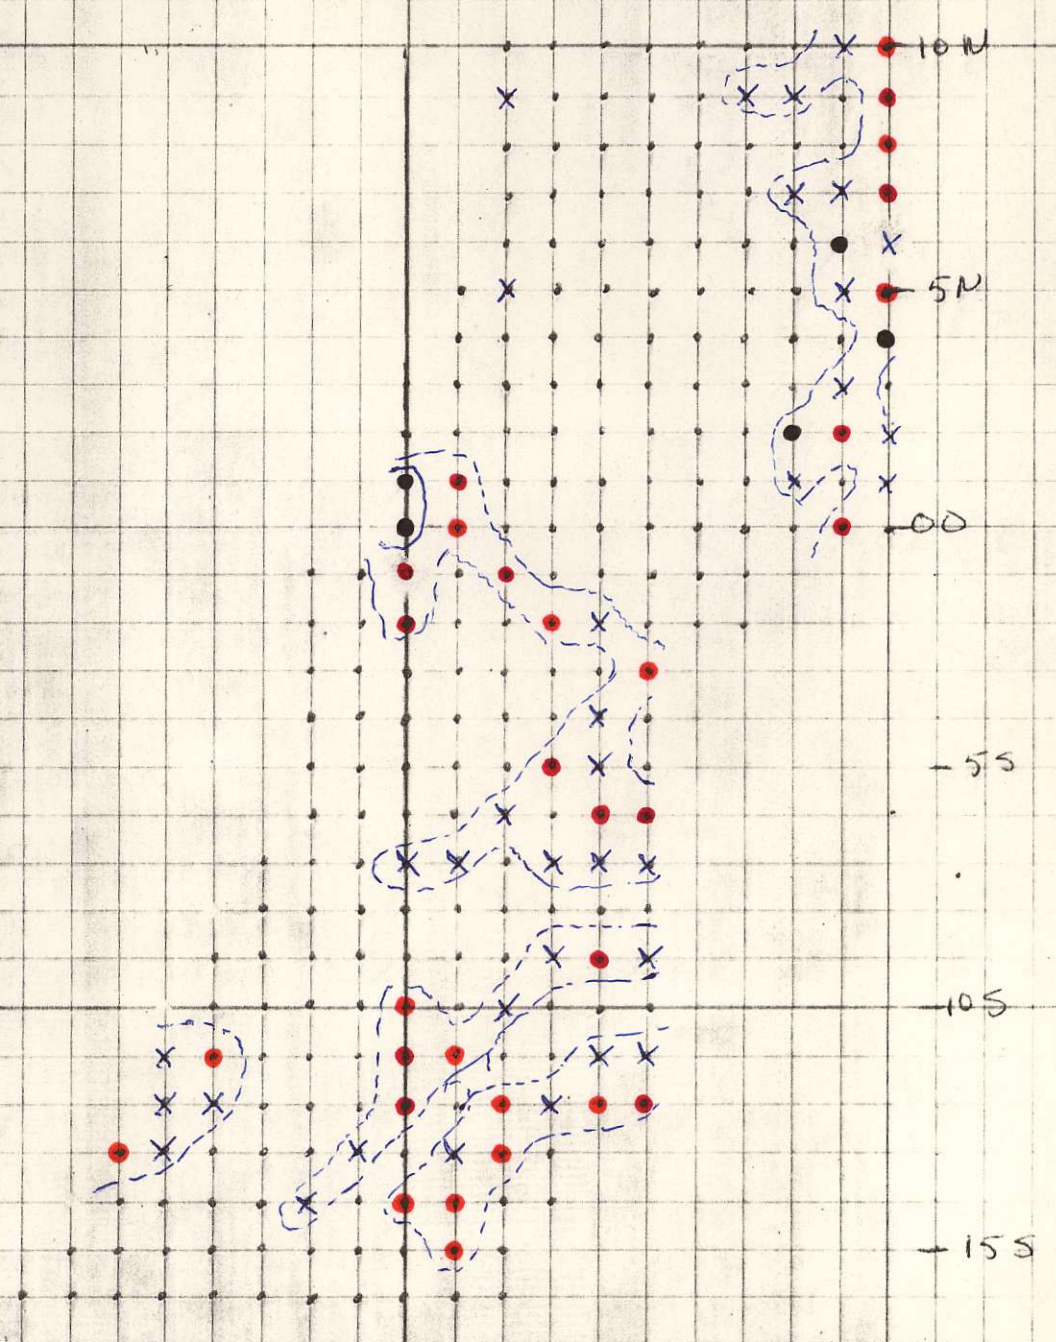 10 N
5N
00
5S
10S
15S